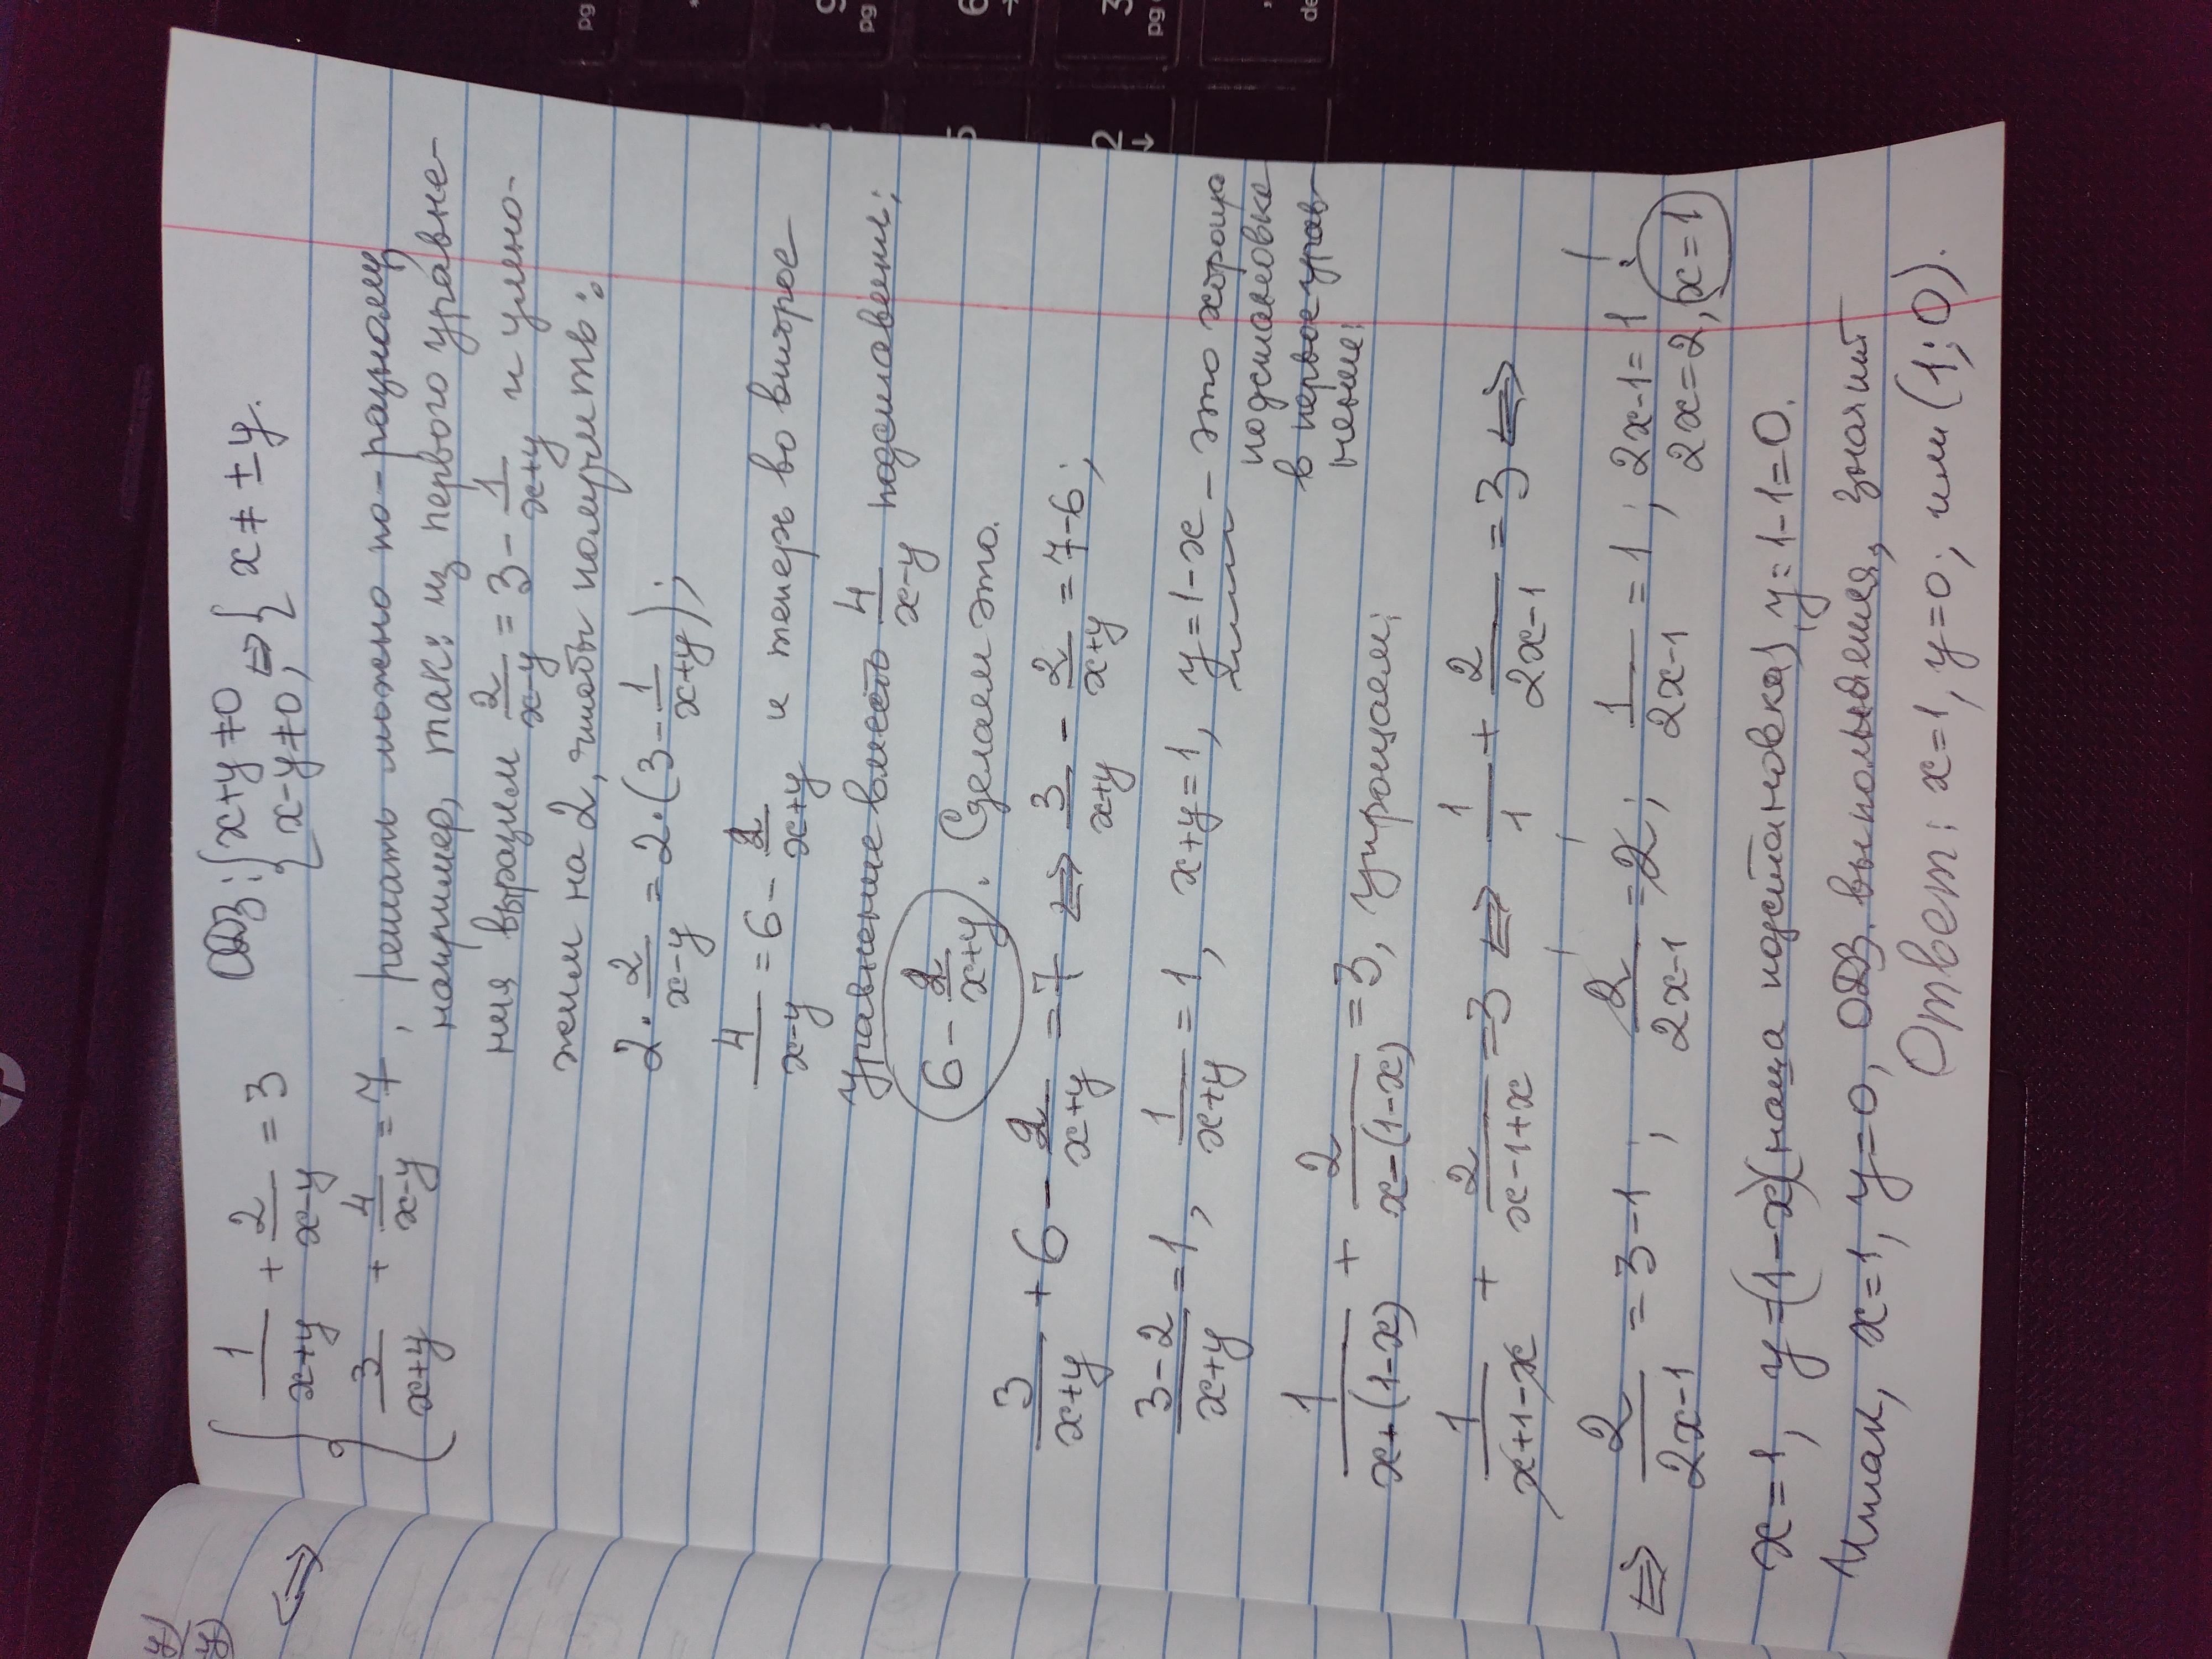 { 1/(x+y) + 2/(x-y) = 3   ОДЗ: { x+y≠0 ⇔ { x ≠ ±y.
{ 3/(x+y) + 4/(x-y) = 7   { x-y≠0,
, решать можно по-разному
например, так: из первого уравне-
ния выразим 2/(x-y) = 3 - 1/(x+y) и умно-
жим на 2, чтобы получить:
2 · 2/(x-y) = 2·(3 - 1/(x+y));
4/(x-y) = 6 - 2/(x+y) и теперь во второе
уравнение вместо 4/(x-y) подставим:
6 - 2/(x+y). Сделаем это.
3/(x+y) + 6 - 2/(x+y) = 7 ⇔ 3/(x+y) - 2/(x+y) = 7-6;
(3-2)/(x+y) = 1, 1/(x+y) = 1, x+y=1, y=1-x - это хорошо
подстановке
в первое урав-
нение:
1/(x+(1-x)) + 2/(x-(1-x)) = 3, упрощаем:
1/(x+1-x) + 2/(x-1+x) = 3 ⇔ 1/1 + 2/(2x-1) = 3 ⇔
⇔ 2/(2x-1) = 3-1; 2/(2x-1) = 2; 1/(2x-1) = 1; 2x-1=1;
2x=2, x=1
x=1, y=(1-x)(наша подстановка) y=1-1=0.
Итак, x=1, y=0, ОДЗ выполняется, значит
Ответ: x=1, y=0; или (1;0).
y)
y)
⇔
pg
9
pg
6
→
3
pg
de
5
2
↓